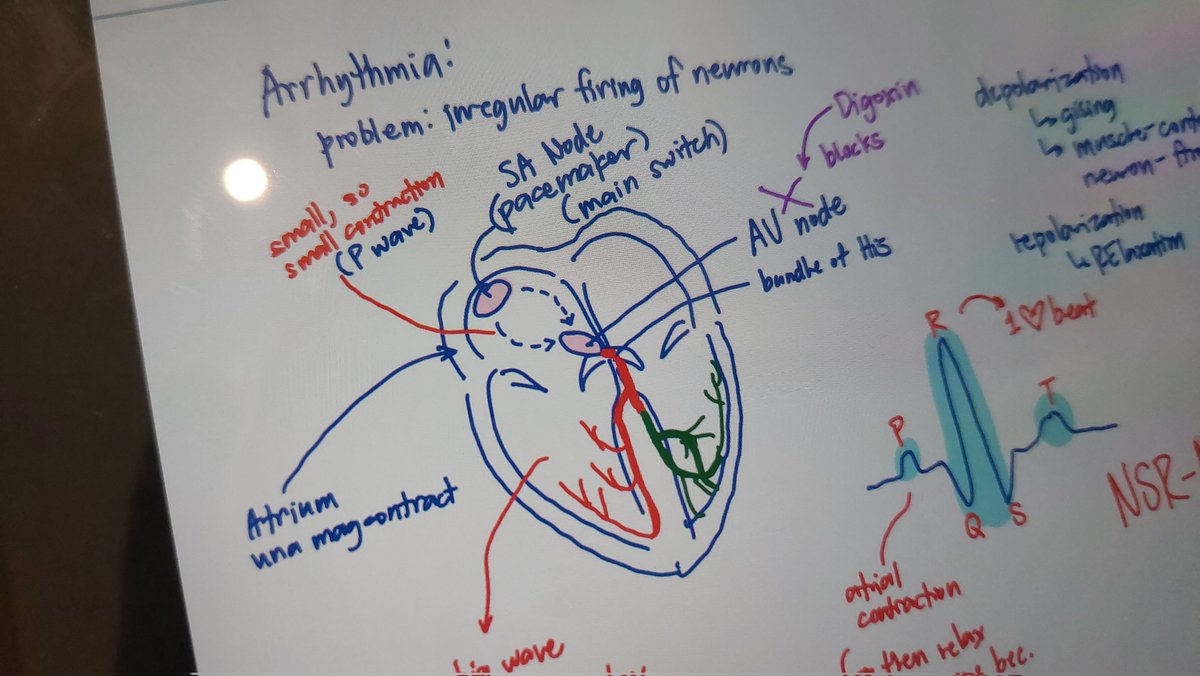 Arrhythmia:
problem: irregular firing of neurons
SA Node
(pacemaker)
(main switch)
small, so
small contraction
(P wave)
Digoxin
blocks
AV node
bundle of His
Atrium
una magcontract
wave
depolarization
↳ gising
↳ muscle-
neuron-
repolarization
↳ RElaxation
R
1 ♡ beat
P
T
Q
S
NSR-
atrial
contraction
then relax
bec.